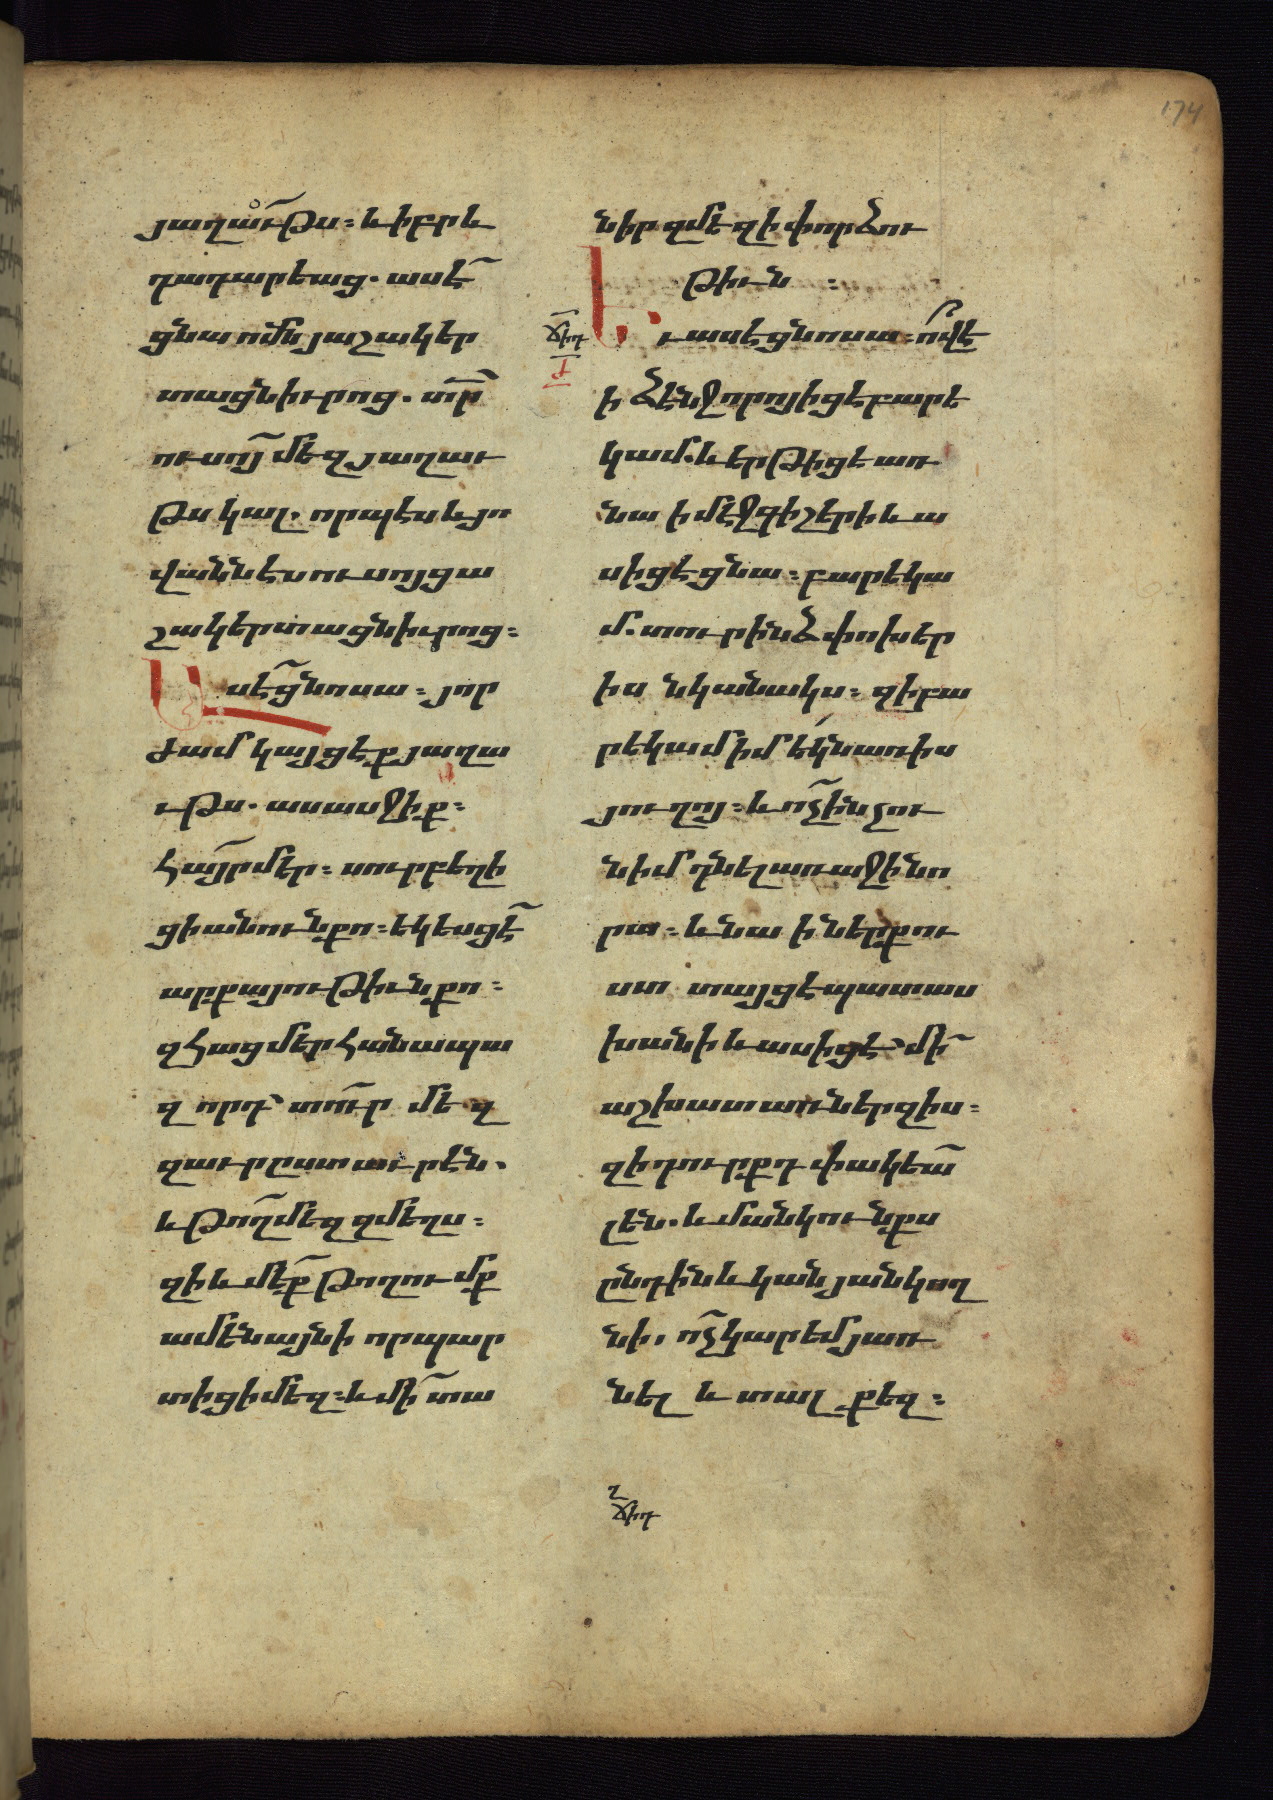 174
յաղաւթս։ և իբրև
դադարեաց. ասէ
ցնա ոմն յաշակեր
տացն իւրոց. տր
ուսո մեզ յաղաւ
թս կալ. որպէս և յո
վաննէս ուսոյց ա
շակերտացն իւրոց։
Ասէ ցնոսա։ յոր
ժամ կայցէք յաղա
ւթս. ասասջիք։
Հայր մեր։ սուրբ եղի
ցի անուն քո։ եկեսցէ
արքայութիւն քո։
զհաց մեր հանապա
զորդ տուր մեզ
զաւր ըստ աւրէն.
և թող մեզ զմեղս։
զի և մեք թողումք
ամենայնի որ պար
տիցի մեզ։ և մի տա
նիր զմեզ ի փորձու
թիւն ։
ճիդ
թ
Եւ ասէ ցնոսա։ ո վ է
ի ձէնջ որոյ իցէ բարե
կամ. և երթիցէ առ
նա ի մէջ գիշերի և ա
սիցէ ցնա։ բարեկա
մ. տուր ինձ փոխ եր
իս նկանակս։ զի բա
րեկամ իմ եկն առ իս
յուղոյ։ և ոչ ինչ ու
նիմ դնել առաջի նո
րա։ և նա ի ներքու
ստ տայցէ պատաս
խանի և ասիցէ մի
աշխատ առներ զիս։
զի դուրքդ փակեա
լ են. և մանկունքս
ընդ ին և կան յանկող
նի, ոչ կարեմ յառ
նել և տալ քեզ։
ճիդ